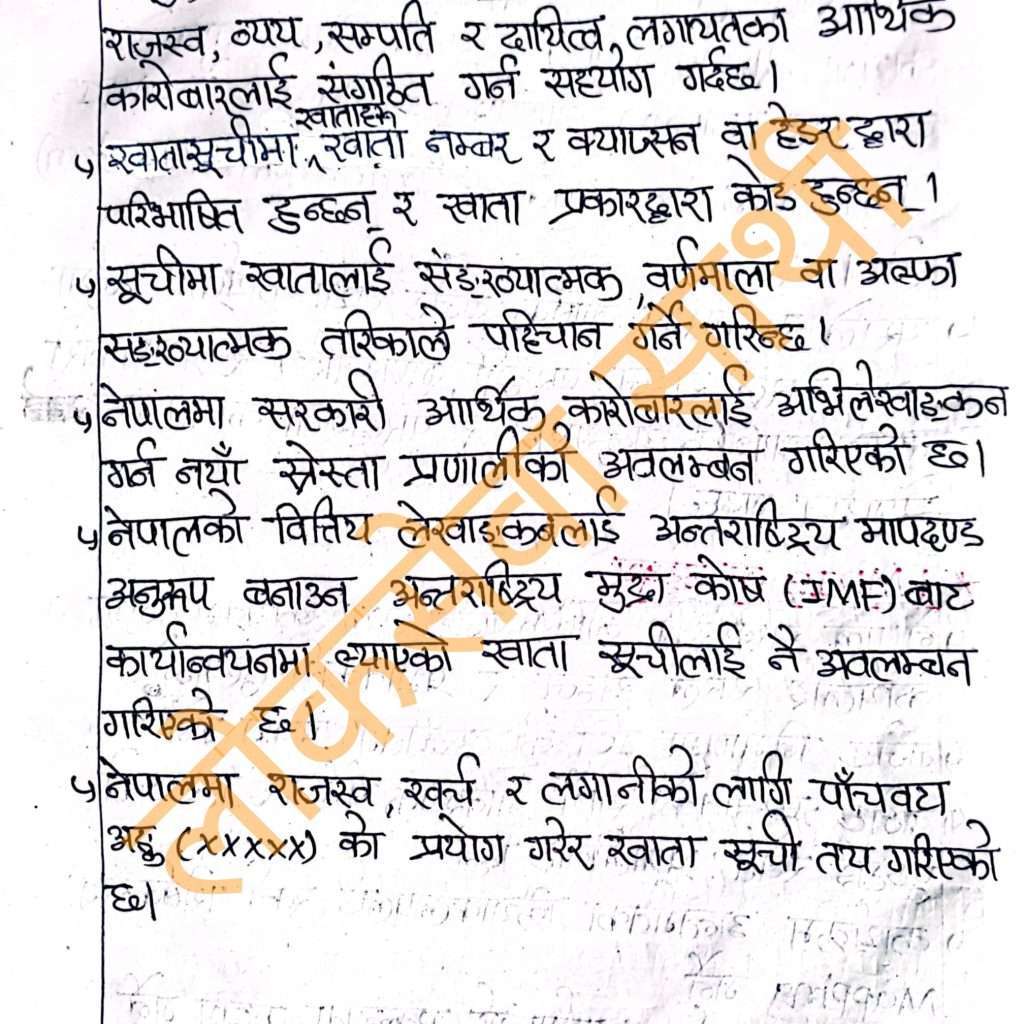 राजस्व, व्यय, सम्पति र दायित्व, लगायतका आर्थिक
कारोबारलाई संगठित गर्न सहयोग गर्दछ।
खाताहरू
खातासूचीमा ^ खाता नम्बर र क्याप्सन वा हेडर द्वारा
परिभाषित हुन्छन् र खाता प्रकारद्वारा कोड हुन्छन् ।
सूचीमा खातालाई सङ्ख्यात्मक, वर्णमाला वा अल्फा
सङ्ख्यात्मक तरिकाले पहिचान गर्ने गरिन्छ।
नेपालमा सरकारी आर्थिक कारोबारलाई अभिलेखाङ्कन
गर्न नयाँ स्रेस्ता प्रणालीको अवलम्बन गरिएको छ।
नेपालको वित्तिय लेखाङ्कनलाई अन्तराष्ट्रिय मापदण्ड
अनुरूप बनाउन अन्तराष्ट्रिय मुद्रा कोष (IMF) बाट
कार्यान्वयनमा ल्याएको खाता सूचीलाई नै अवलम्बन
गरिएको छ।
नेपालमा राजस्व, खर्च र लगानीको लागि पाँचवटा
अङ्क (xxxxx) को प्रयोग गरेर खाता सूची तय गरिएको
छ।
लोकसेवा साथी